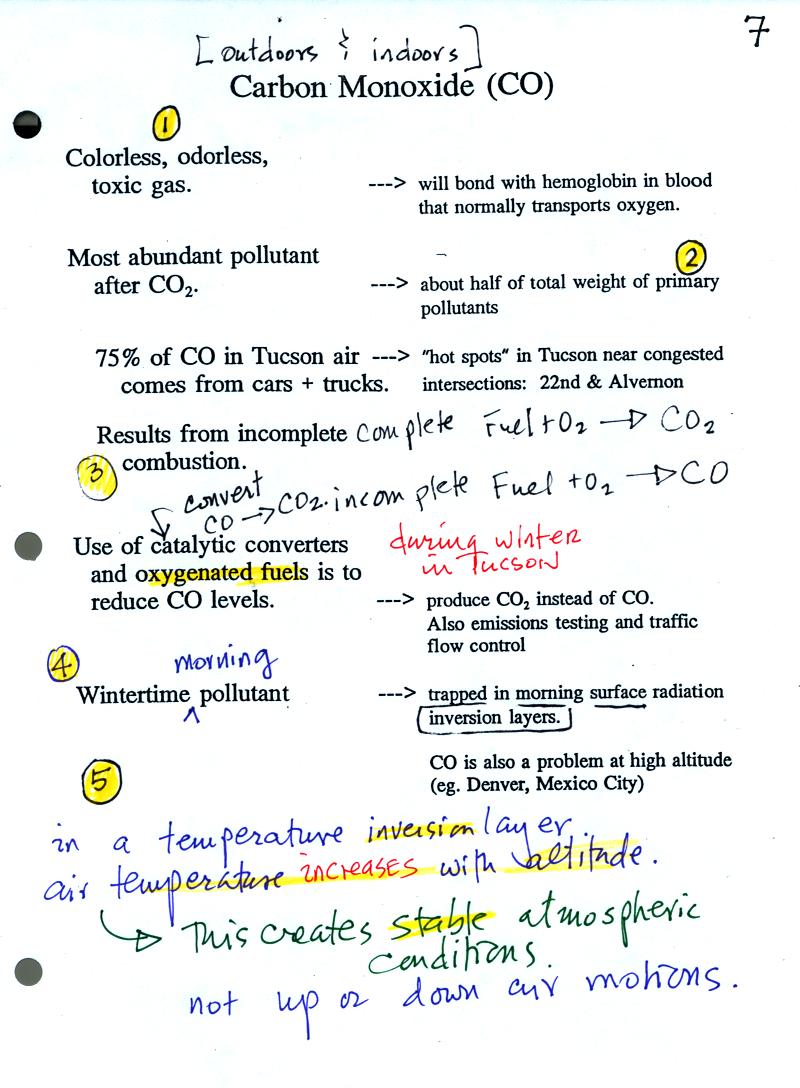 7
[outdoors & indoors]
Carbon Monoxide (CO)
1
Colorless, odorless,
toxic gas.
---> will bond with hemoglobin in blood
that normally transports oxygen.
Most abundant pollutant
after CO₂.
2
---> about half of total weight of primary
pollutants
75% of CO in Tucson air
comes from cars + trucks.
---> "hot spots" in Tucson near congested
intersections: 22nd & Alvernon
Results from incomplete
combustion.
complete Fuel + O₂ → CO₂
3
incomplete Fuel + O₂ → CO
convert
CO → CO₂.
Use of catalytic converters
and oxygenated fuels is to
reduce CO levels.
during winter
in Tucson
---> produce CO₂ instead of CO.
Also emissions testing and traffic
flow control
4
morning
Wintertime ^ pollutant
---> trapped in morning surface radiation
inversion layers.
CO is also a problem at high altitude
(eg. Denver, Mexico City)
5
in a temperature inversion layer
air temperature increases with altitude.
→ This creates stable atmospheric
conditions.
not up or down air motions.